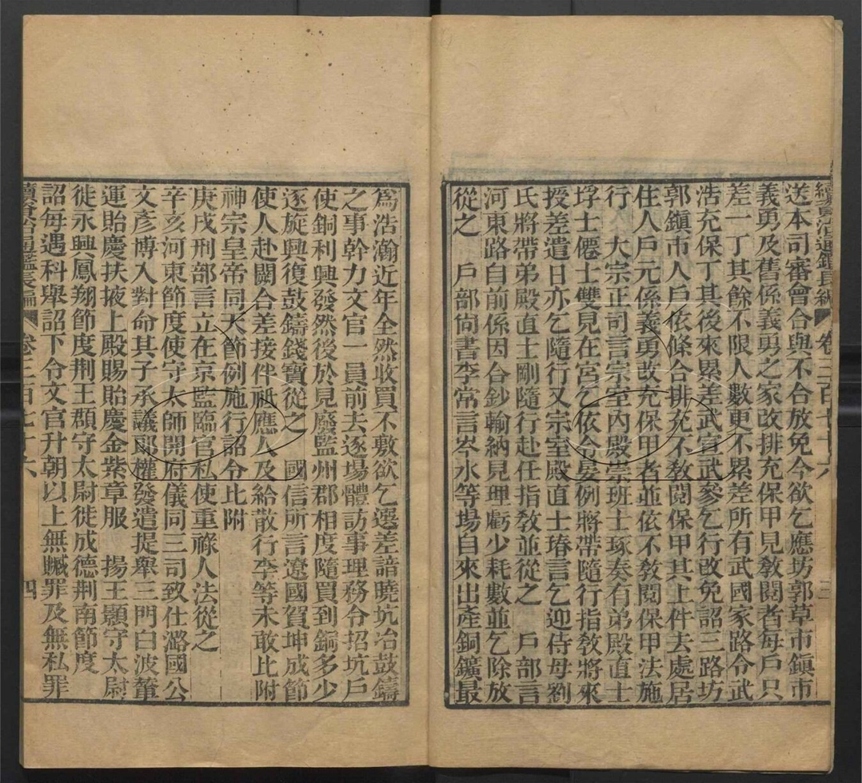 送本司審會合與不合放免今欲乞應坊郭草市鎮市
義勇及舊係義勇之家改排充保甲見教閱者每戶只
差一丁其餘不限人數更不累差所有武國家路令武
浩充保丁其後來累差武宣武參乞行改免詔三路坊
郭鎮市人戶依條合排充不教閱保甲其上件去處居
住人戶元係義勇改充保甲者並依不教閱保甲法施
行　大宗正司言宗室內殿崇班士琢奏有弟殿直士
垺士僊士雙見在宮乞依令晏例將帶隨行指教將來
授差遣日亦乞隨行又宗室殿直士琫言乞迎侍母劉
氏將帶弟殿直士剛隨行赴任指教並從之　戶部言
河東路自前係因合鈔輸納見理虧少耗數並乞除放
從之　戶部尚書李常言岑水等場自來出產銅鑛最
續資治通鑑長編　卷三百七十六　三
為浩瀚近年全然收買不敷欲乞選差諳曉坑冶鼓鑄
之事幹力文官一員前去逐場體訪事理務令招坑戶
使銅利興發然後於見廢監州郡相度隨買到銅多少
逐旋興復鼓鑄錢寶從之　國信所言遼國賀坤成節
使人赴闕合差接伴祗應人及給散行李等未敢比附
神宗皇帝同天節例施行詔令比附
庚戌刑部言立在京監臨官私使重祿人法從之
辛亥河東節度使守太師開府儀同三司致仕潞國公
文彥博入對命其子承議郎權發遣提舉三門白波輦
運貽慶扶掖上殿賜貽慶金紫章服　揚王顥守太尉
徙永興鳳翔節度荆王頵守太尉徙成德荆南節度
詔每遇科舉詔下令文官升朝以上無贓罪及無私罪
續資治通鑑長編　卷三百七十六　四